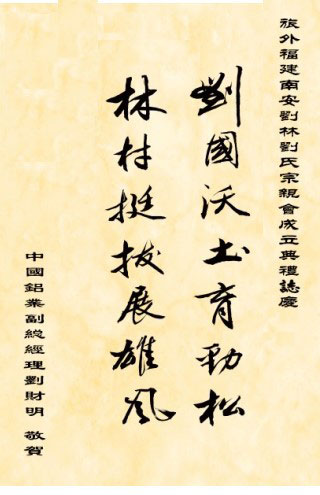 旅外福建南安劉林劉氏宗親會成立典禮誌慶
劉國沃土育勁松
林村挺拔展雄風
中國鋁業副總經理劉財明 敬賀